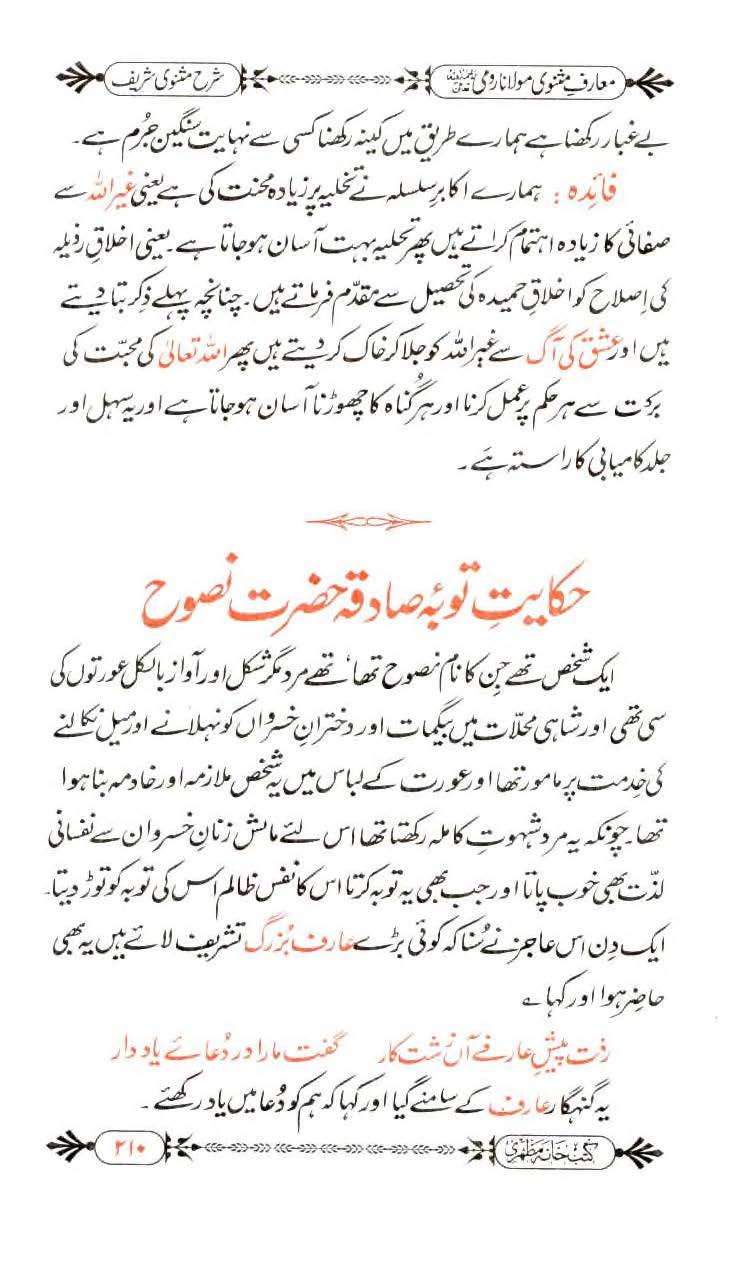 معارفِ مثنوی مولانا رومی شرح مثنوی شریف
بے غبار رکھنا ہے ہمارے طریق میں کینہ رکھنا کسی سے نہایت سنگین جُرم ہے۔
فائدہ: ہمارے اکابرِ سلسلہ نے تخلیہ پر زیادہ محنت کی ہے یعنی غیر اللہ سے
صفائی کا زیادہ اہتمام کراتے ہیں پھر تحلیہ بہت آسان ہو جاتا ہے۔ یعنی اخلاقِ رذیلہ
کی اِصلاح کو اخلاقِ حمیدہ کی تحصیل سے مقدّم فرماتے ہیں۔ چنانچہ پہلے ذِکر بتا دیتے
ہیں اور عشق کی آگ سے غیر اللہ کو جلا کر خاک کر دیتے ہیں پھر اللہ تعالیٰ کی محبّت کی
برکت سے ہر حکم پر عمل کرنا اور ہر گُناہ کا چھوڑنا آسان ہو جاتا ہے اور یہ سہل اور
جلد کامیابی کا راستہ ہَے۔
حکایتِ توبۂ صادقہ حضرت نصوح
ایک شخص تھے جِن کا نام نصوح تھا، تھے مرد مگر شکل اور آواز بالکل عورتوں کی
سی تھی اور شاہی محلّات میں بیگمات اور دخترانِ خسرواں کو نہلانے اور میل نکالنے
کی خِدمت پر مامور تھا اور عورت کے لباس میں یہ شخص ملازمہ اور خادمہ بنا ہوا
تھا۔ چونکہ یہ مرد شہوتِ کاملہ رکھتا تھا اس لئے مالش زنانِ خسروان سے نفسانی
لذّت بھی خوب پاتا اور جب بھی یہ توبہ کرتا اس کا نفس ظالم اس کی توبہ کو توڑ دیتا۔
ایک دِن اس عاجز نے سُنا کہ کوئی بڑے عارف بُزرگ تشریف لائے ہیں یہ بھی
حاضِر ہوا اور کہا ؎
رفت پیشِ عارفے آں زُشت کار گفت مارا در دُعائے یاد دار
یہ گنہگار عارف کے سامنے گیا اور کہا کہ ہم کو دُعا میں یاد رکھئے۔
کتب خانہ مظہری ۲۱۰